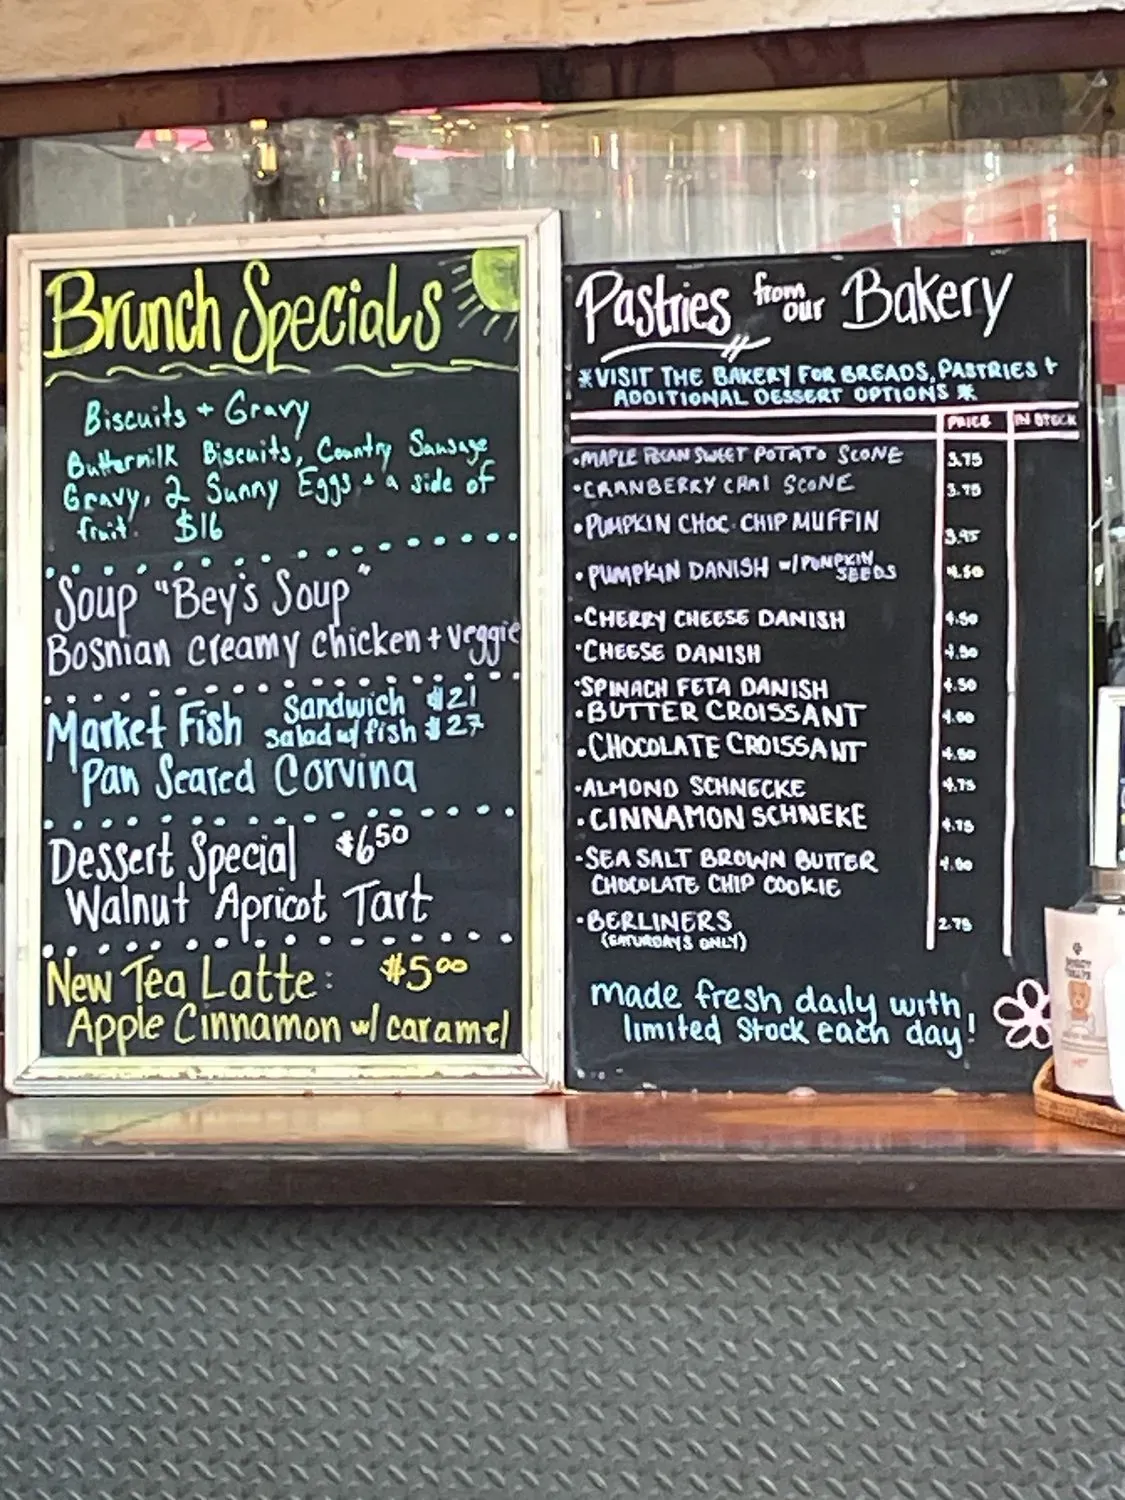 Brunch Specials
Biscuits + Gravy
Buttermilk Biscuits, Country Sausage
Gravy, 2 Sunny Eggs + a side of
fruit. $16
Soup "Bey's Soup"
Bosnian creamy chicken + veggie
Market Fish Sandwich $21
salad w/ fish $27
Pan Seared Corvina
Dessert Special $6.50
Walnut Apricot Tart
New Tea Latte: $5.00
Apple Cinnamon w/ caramel
Pastries from our Bakery
*VISIT THE BAKERY FOR BREADS, PASTRIES +
ADDITIONAL DESSERT OPTIONS *
PRICE IN STOCK
•MAPLE PECAN SWEET POTATO SCONE 3.75
•CRANBERRY CHAI SCONE 3.75
•PUMPKIN CHOC. CHIP MUFFIN 3.95
•PUMPKIN DANISH W/PUMPKIN SEEDS 4.50
•CHERRY CHEESE DANISH 4.50
•CHEESE DANISH 4.50
•SPINACH FETA DANISH 4.50
•BUTTER CROISSANT 4.00
•CHOCOLATE CROISSANT 4.50
•ALMOND SCHNECKE 4.75
•CINNAMON SCHNEKE 4.75
•SEA SALT BROWN BUTTER
CHOCOLATE CHIP COOKIE
•BERLINERS 2.75
(SATURDAYS ONLY)
made fresh daily with
limited stock each day!